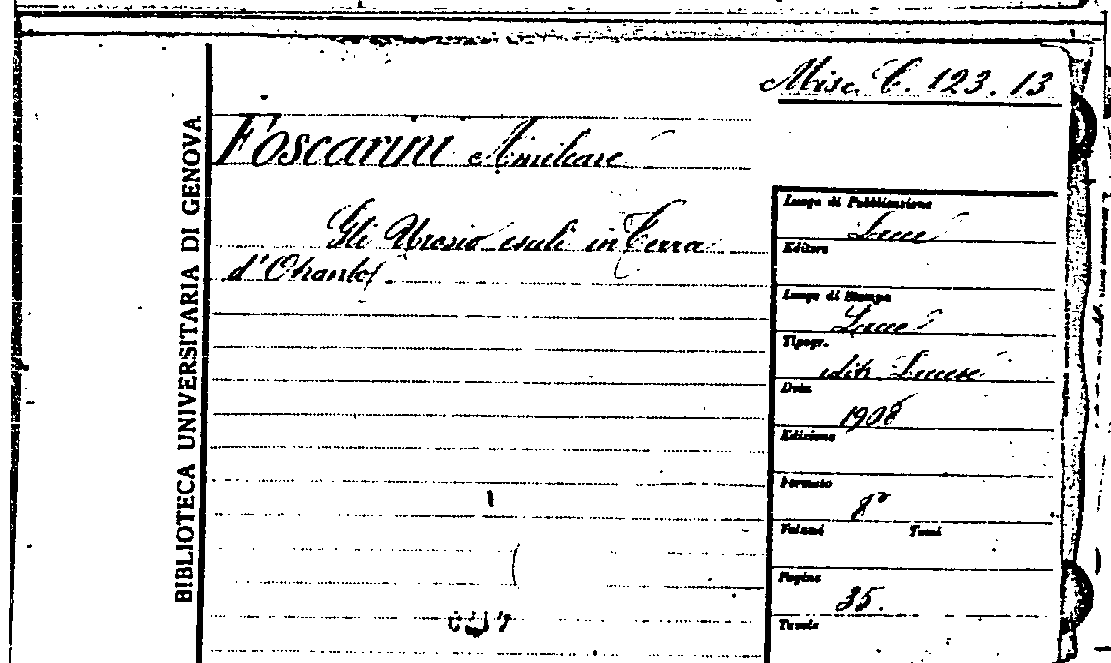 Misc. C. 123. 13
BIBLIOTECA UNIVERSITARIA DI GENOVA
Foscarini Amilcare
Gli esuli in Terra
d'Otranto
Luogo di Pubblicazione
Lecce
Editore
Luogo di Stampa
Lecce
Tipogr.
edit. Leccese
Data
1908
Edizione
Formato
8°
Volumi Tomi
Pagine
35.
Tavole